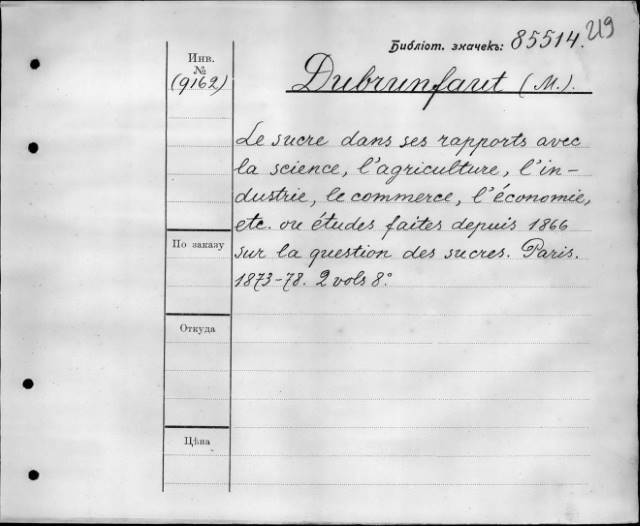 219
Библіот. значекъ: 85514.
Инв.
№
(9162)
Dubrunfaut (M.).
Le sucre dans ses rapports avec
la science, l'agriculture, l'in-
dustrie, le commerce, l'économie,
etc. ou études faites depuis 1866
sur la question des sucres. Paris.
1873-78. 2 vols 8°.
По заказу
Откуда
Цѣна